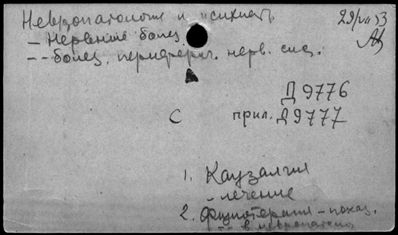 Невропатология и психиат. 29/VII 53
– Нервные болез.
– – болез. периферич. нерв. сис.
Д 9776
С прил. Д 9777
1. Каузалгия
– лечение
2. Физиотерапия – показ.
– – в невропатолог.